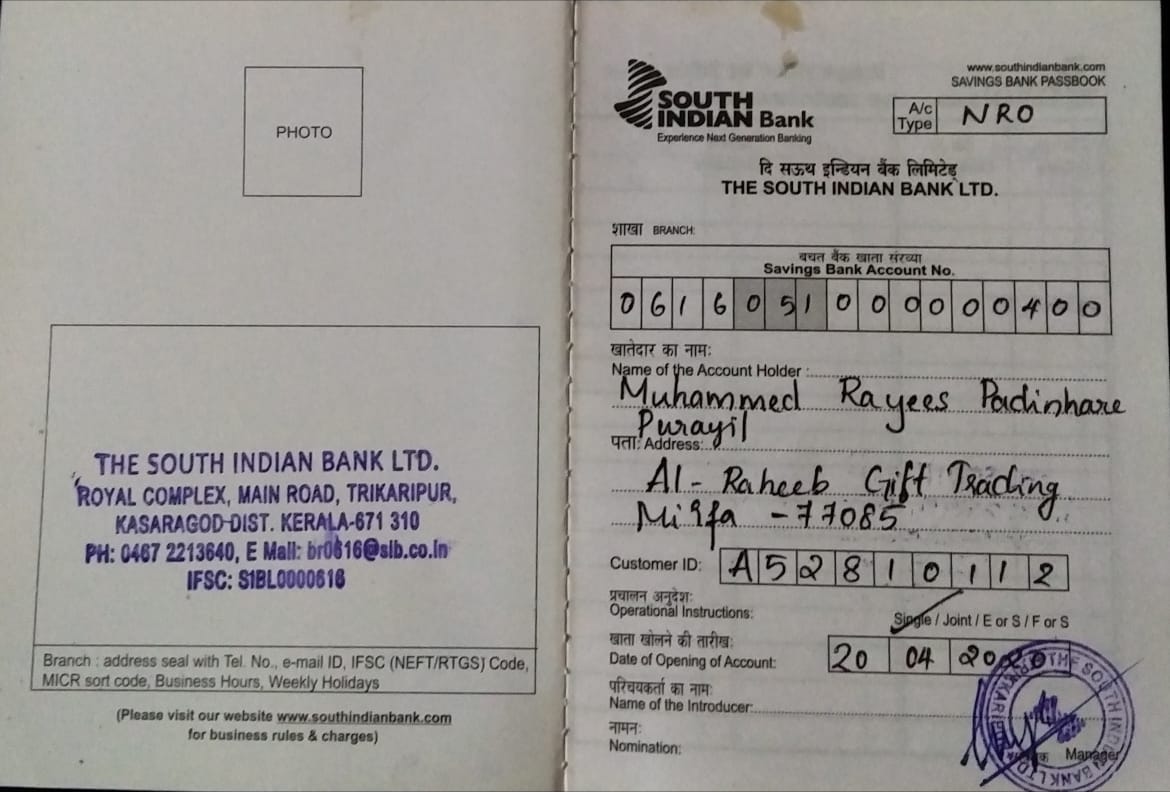 PHOTO
THE SOUTH INDIAN BANK LTD.
ROYAL COMPLEX, MAIN ROAD, TRIKARIPUR,
KASARAGOD-DIST. KERALA-671 310
PH: 0467 2213640, E Mail: br0616@sib.co.in
IFSC: SIBL0000616
Branch : address seal with Tel. No., e-mail ID, IFSC (NEFT/RTGS) Code,
MICR sort code, Business Hours, Weekly Holidays
(Please visit our website www.southindianbank.com
for business rules & charges)
www.southindianbank.com
SAVINGS BANK PASSBOOK
SOUTH
INDIAN Bank
Experience Next Generation Banking
A/c
Type NRO
दि साऊथ इन्डियन बैंक लिमिटेड्
THE SOUTH INDIAN BANK LTD.
शाखा BRANCH:
बचत बैंक खाता संख्या
Savings Bank Account No.
0616051000000400
खातेदार का नाम:
Name of the Account Holder :
Muhammed Rayees Padinhare
Purayil
पता: Address:
Al- Raheeb Gift Trading
Mirfa - 77085
Customer ID: A52810112
प्रचालन अनुदेश:
Operational Instructions: Single / Joint / E or S / F or S
खाता खोलने की तारीख:
Date of Opening of Account: 20 04 2020
परिचयकर्ता का नाम:
Name of the Introducer:
नामन:
Nomination:
Manager
THE SOUTH INDIAN BANK LTD